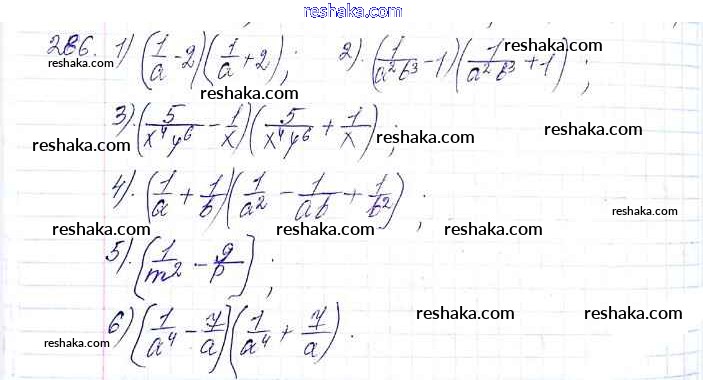 reshaka.com
286. 1) (1/a - 2)(1/a + 2); 2). (1/a²b³ - 1)(1/a²b³ + 1);
reshaka.com reshaka.com reshaka.com
3). (5/x⁴y⁶ - 1/x)(5/x⁴y⁶ + 1/x);
reshaka.com reshaka.com reshaka.com
4). (1/a + 1/b)(1/a² - 1/ab + 1/b²);
reshaka.com reshaka.com reshaka.com
5). [1/m² - 9/p];
reshaka.com reshaka.com reshaka.com
6) [1/a⁴ - 7/a](1/a⁴ + 7/a).
reshaka.com reshaka.com reshaka.com
reshaka.com